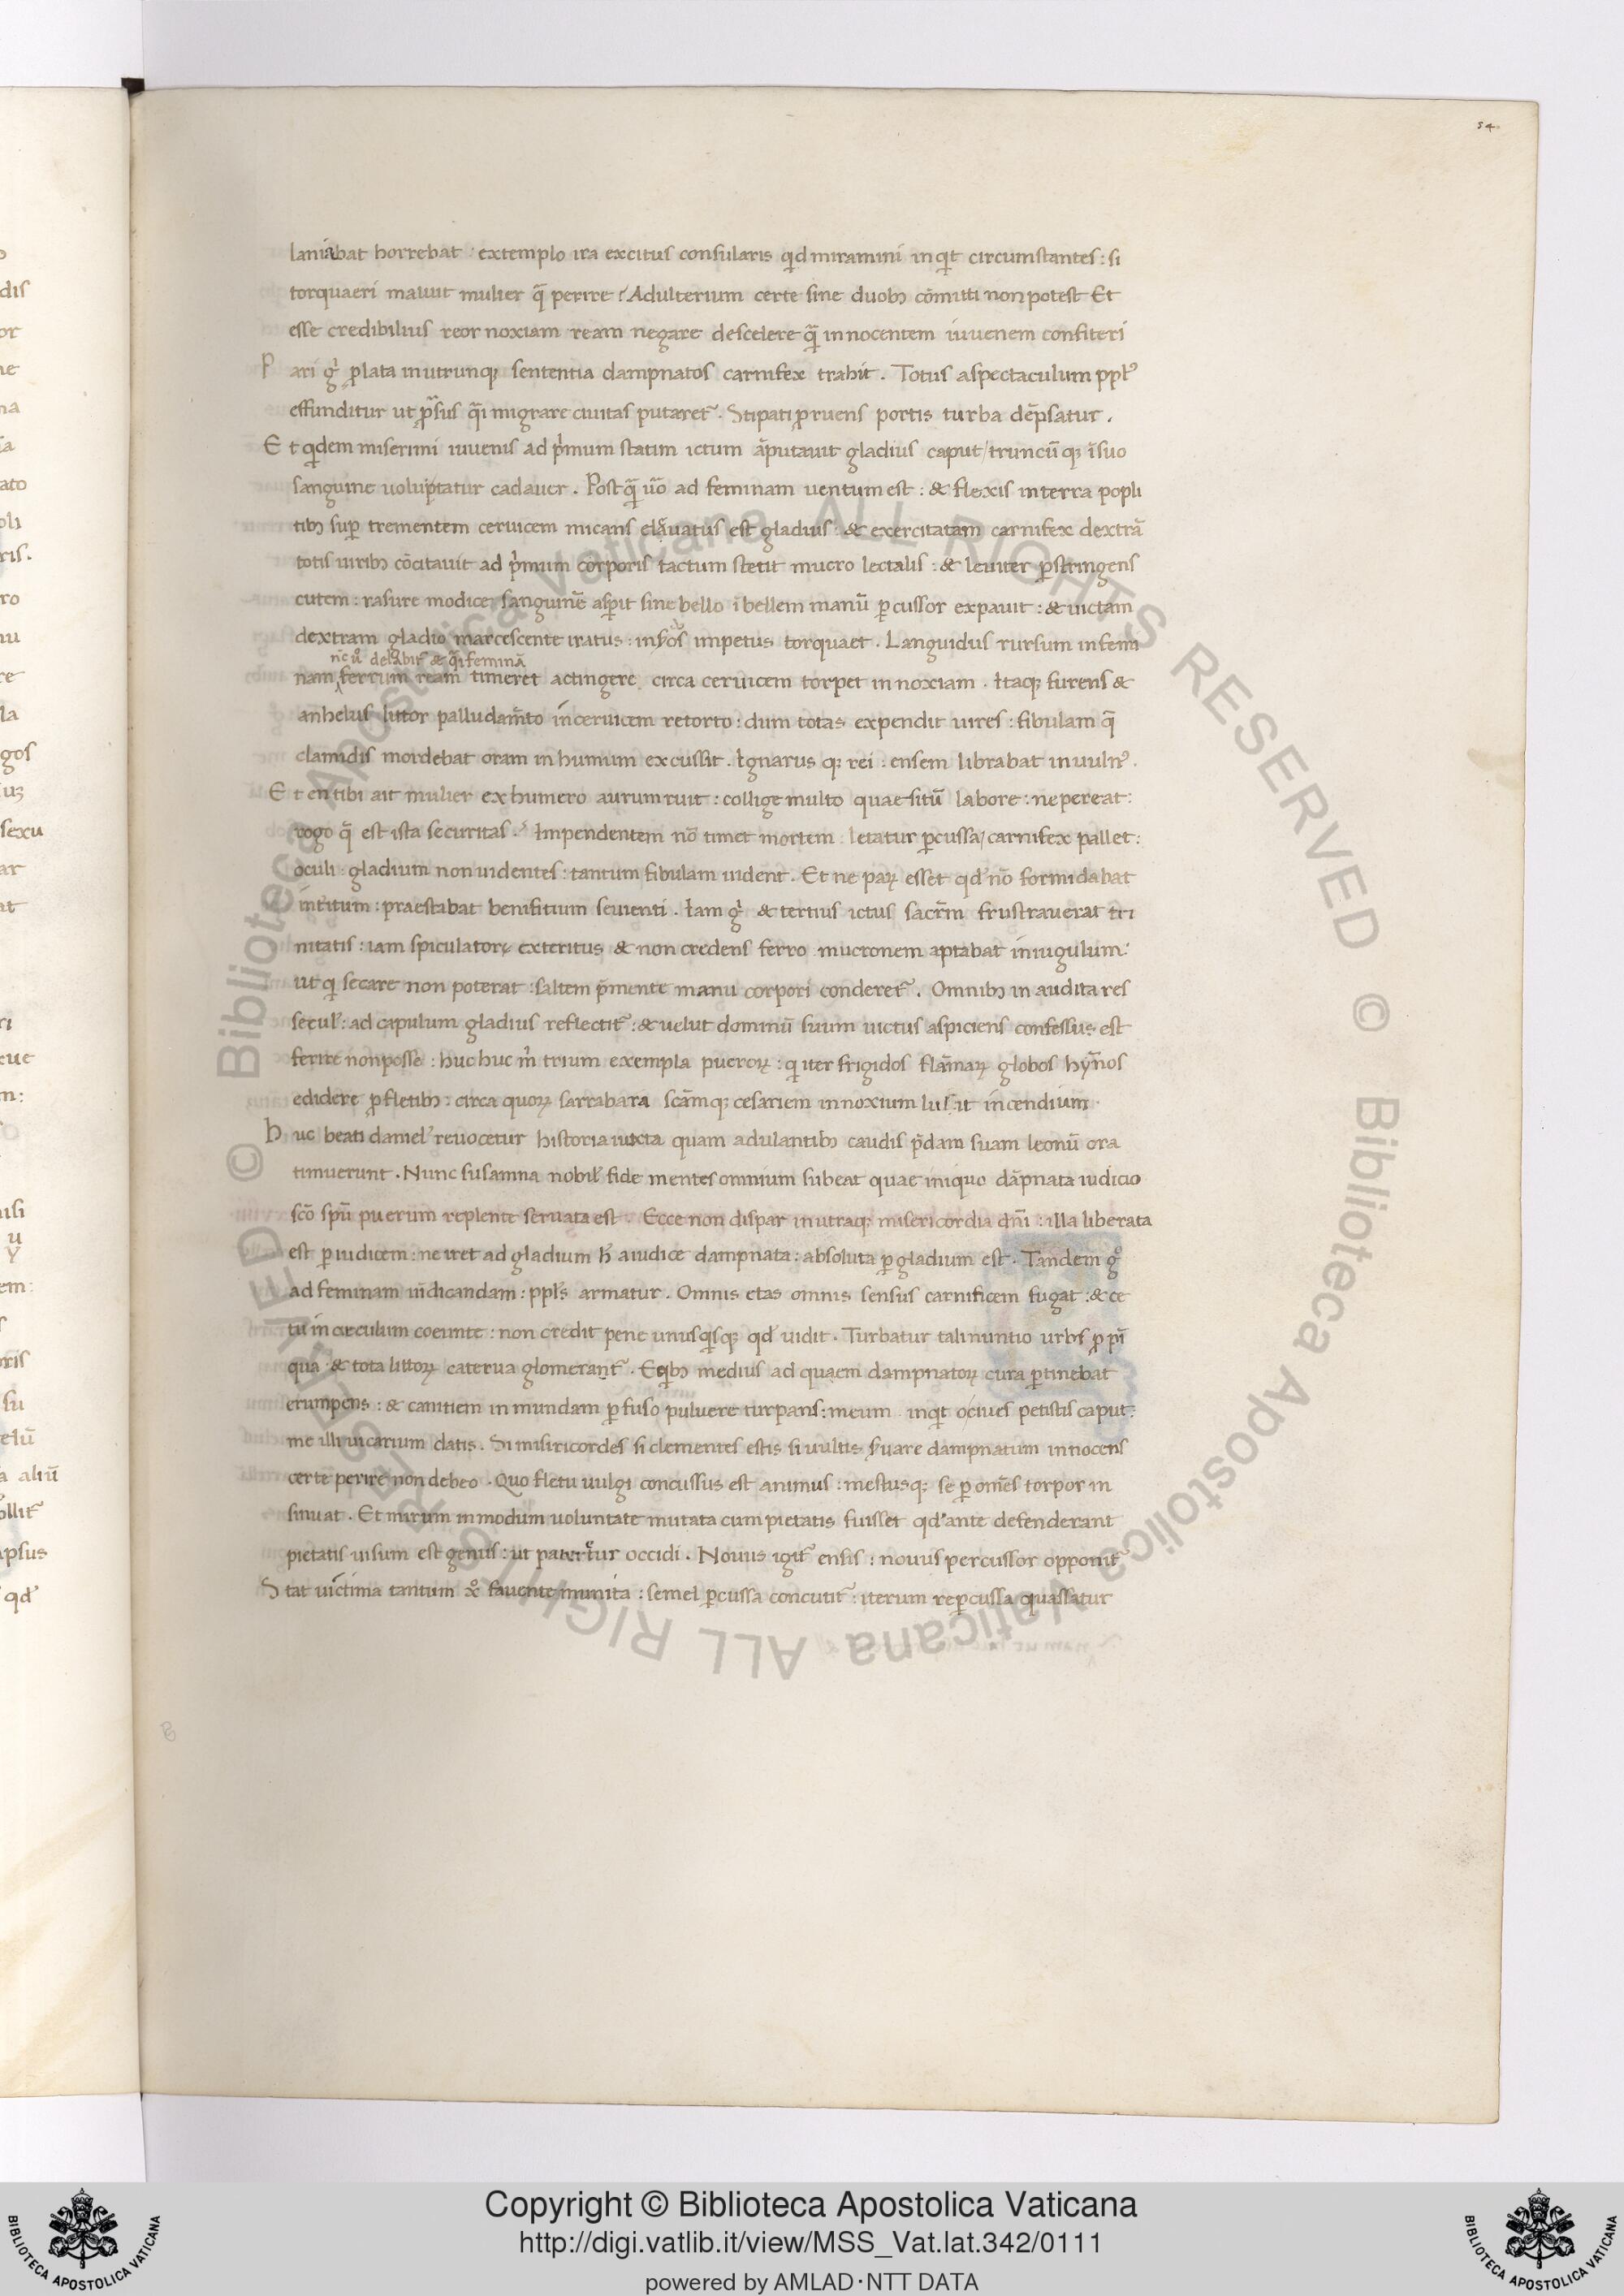 54
laniabat horrebat : extemplo ira excitus consularis qd miramini inqt circumstantes : si
torquaeri mauvit mulier q̄ perire ? Adulterium certe sine duob; cōmitti non potest Et
esse credibilius reor noxiam ream negare descelere q̄ innocentem iuvenem confiteri
P ari gͥ plata inutrunq; sententia dampnatos carnifex trahit . Totus aspectaculum pplꝰ
effunditur ut prsus q̄i migrare civitas putaret̄ . Stipati pruens portis turba dēpsatur .
E t qdem miserimi iuvenis ad pͥmum statim ictum āputavit gladius caput / truncūq; īsuo
sanguine voluptatur cadaver . Postq̄ ūo ad feminam ventum est : & flexis interra popli
tib; sup trementem cervicem micans elavatus est gladius : & exercitatam carnifex dextrā
totis virib; cōcitavit ad pͥmum corporis tactum stetit mucro lectalis : & leviter pstringens
cutem : rasure modice sanguinē aspsit sine bello ībellem manū pcussor expavit : & victam
dextram gladio marcescente iratus : in impetus torquaet . Languidus rursum infemi
delabit̄ & q̄i feminā
nam ferrum ream timeret actingere circa cervicem torpet innoxiam . Itaq; furens &
anhelus lictor palludam̄to incervicem retorto : dum totas expendit vires : fibulam q̄
clamidis mordebat oram inhumum excussit . Ignarus q; rei : ensem librabat invulnꝰ .
E t en tibi ait mulier exhumero aurum ruit : collige multo quaesitū labore : ne pereat :
rogo q̄ est ista securitas . Impendentem nō timet mortem : letatur pcussa / carnifex pallet :
oculi gladium non videntes : tantum fibulam vident . Et ne parꝝ esset qd nō formidabat
interitum : praestabat benifitium sevienti . Iam gͥ & tertius ictus sacrm̄ frustraverat tri
nitatis : iam spiculatorꝝ exteritus & non credens ferro mucronem aptabat iniugulum :
ut q secare non poterat : saltem pmente manu corpori conderet̄ . Omnib; in audita res
secul : ad capulum gladius reflectit̄ : & velut dominū suum victus aspiciens confessus est
ferire nonposse : huc huc m̄ trium exempla puerorꝝ : q iter frigidos flāmarꝝ globos hymnos
edidere pfletib; : circa quorꝝ sarrabara scāmq; cesariem innoxium lusit incendium .
H uc beati daniel revocetur historia iuxta quam adulantib; caudis pdam suam leonū ora
timuerunt . Nunc susanna nobil fide mentes omnium subeat quae iniquo dāpnata iudicio
scō spū puerum replente servata est . Ecce non dispar inutraq; misericordia dn̄i : illa liberata
est p iudicem : ne iret ad gladium h̄ aiudice dampnata : absoluta p gladium est . Tandem gͦ
ad feminam vīdicandam : pplꝰs armatur . Omnis etas omnis sensus carnificem fugat : & ce
tu in circulum coeunte : non credit pene unusqsq; qd vidit . Turbatur tali nuntio urbs p pī
qua & tota littorꝝ caterva glomerant̄ . Eqb; medius ad quaem dampnatorꝝ cura ptinebat
erumpens : & canitiem inmundam pfuso pulvere turpans : meum inqt ocives petistis caput :
me illi vicarium datis . Si misiricordes si clementes estis si vultis svare dampnatum innocens
certe perire non debeo . Quo fletu vulgi concussus est animus : mestusq; se p om̄es torpor in
sinuat . Et mirum inmodum voluntate mutata cum pietatis fuisset qd ante defenderant
pietatis visum est genus : ut paterētur occidi . Novus igit̄ ensis : novus percussor opponit̄
S tat victima tantum favente munita : semel pcussa concutit̄ : iterum repcussa quassatur
Copyright © Biblioteca Apostolica Vaticana
http://digi.vatlib.it/view/MSS_Vat.lat.342/0111
powered by AMLAD·NTT DATA
BIBLIOTECA APOSTOLICA VATICANA
BIBLIOTECA APOSTOLICA VATICANA
© Biblioteca Apostolica Vaticana ALL RIGHTS RESERVED © Biblioteca Apostolica Vaticana ALL RIGHTS RESERVED